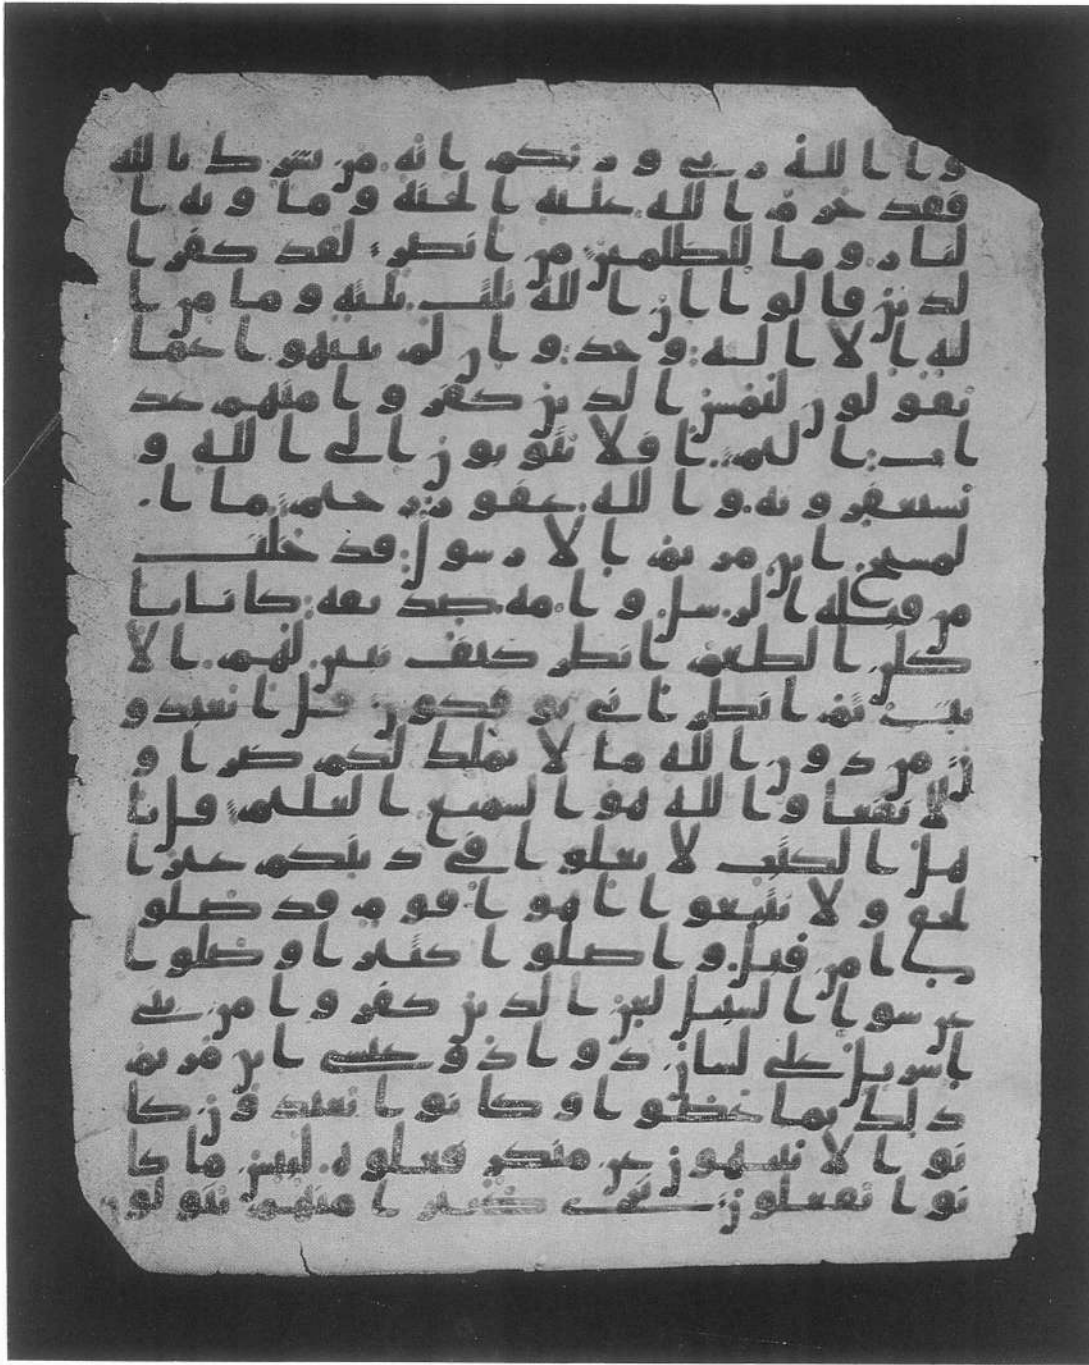 وا الله ربي وربكم انه من يشرك بالله
فقد حرم الله عليه الجنه وماويه ا
لنار وما للظلمين من انصر لقد كفر ا
لذين قالوا ان الله ثلث ثلثه وما من ا
له الا اله وحد وان لم ينتهوا عما
يقولون ليمسن الذين كفروا منهم عذ
اب اليم افلا يتوبون الى الله و
يستغفرونه والله غفور رحيم ما ا
لمسيح ابن مريم الا رسول قد خلت
من قبله الرسل وامه صديقه كانا يا
كلن الطعم انظر كيف نبين لهم الا
يت ثم انظر انى يوفكون قل اتعبدو
ن من دون الله ما لا يملك لكم ضرا و
لا نفعا والله هو السميع العليم قل يا
هل الكتب لا تغلوا في دينكم غير ا
لحق ولا تتبعوا اهوا قوم قد ضلو
ا من قبل واضلوا كثيرا وضلوا
عن سوا السبيل لعن الذين كفروا من بني
اسريل على لسان داود وعيسى ابن مريم
ذلك بما عصوا وكانوا يعتدون كا
نوا لا يتنهون عن منكر فعلوه لبيس ما كا
نوا يفعلون كثيرا منهم يتولون